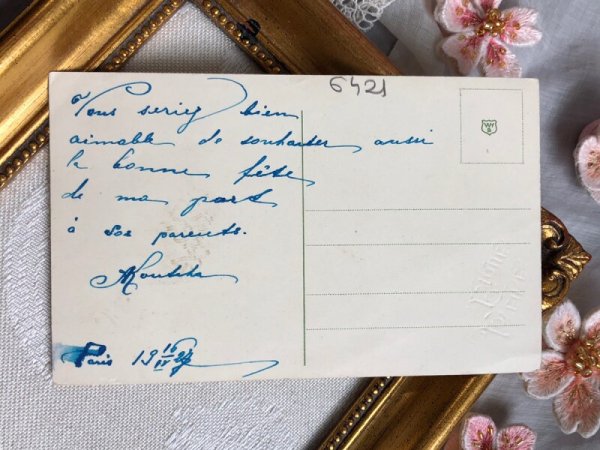 6421
Vous seriez bien
aimable de souhaiter aussi
la bonne fête
de ma part
à ses parents.
Paris 19 16/IV 27